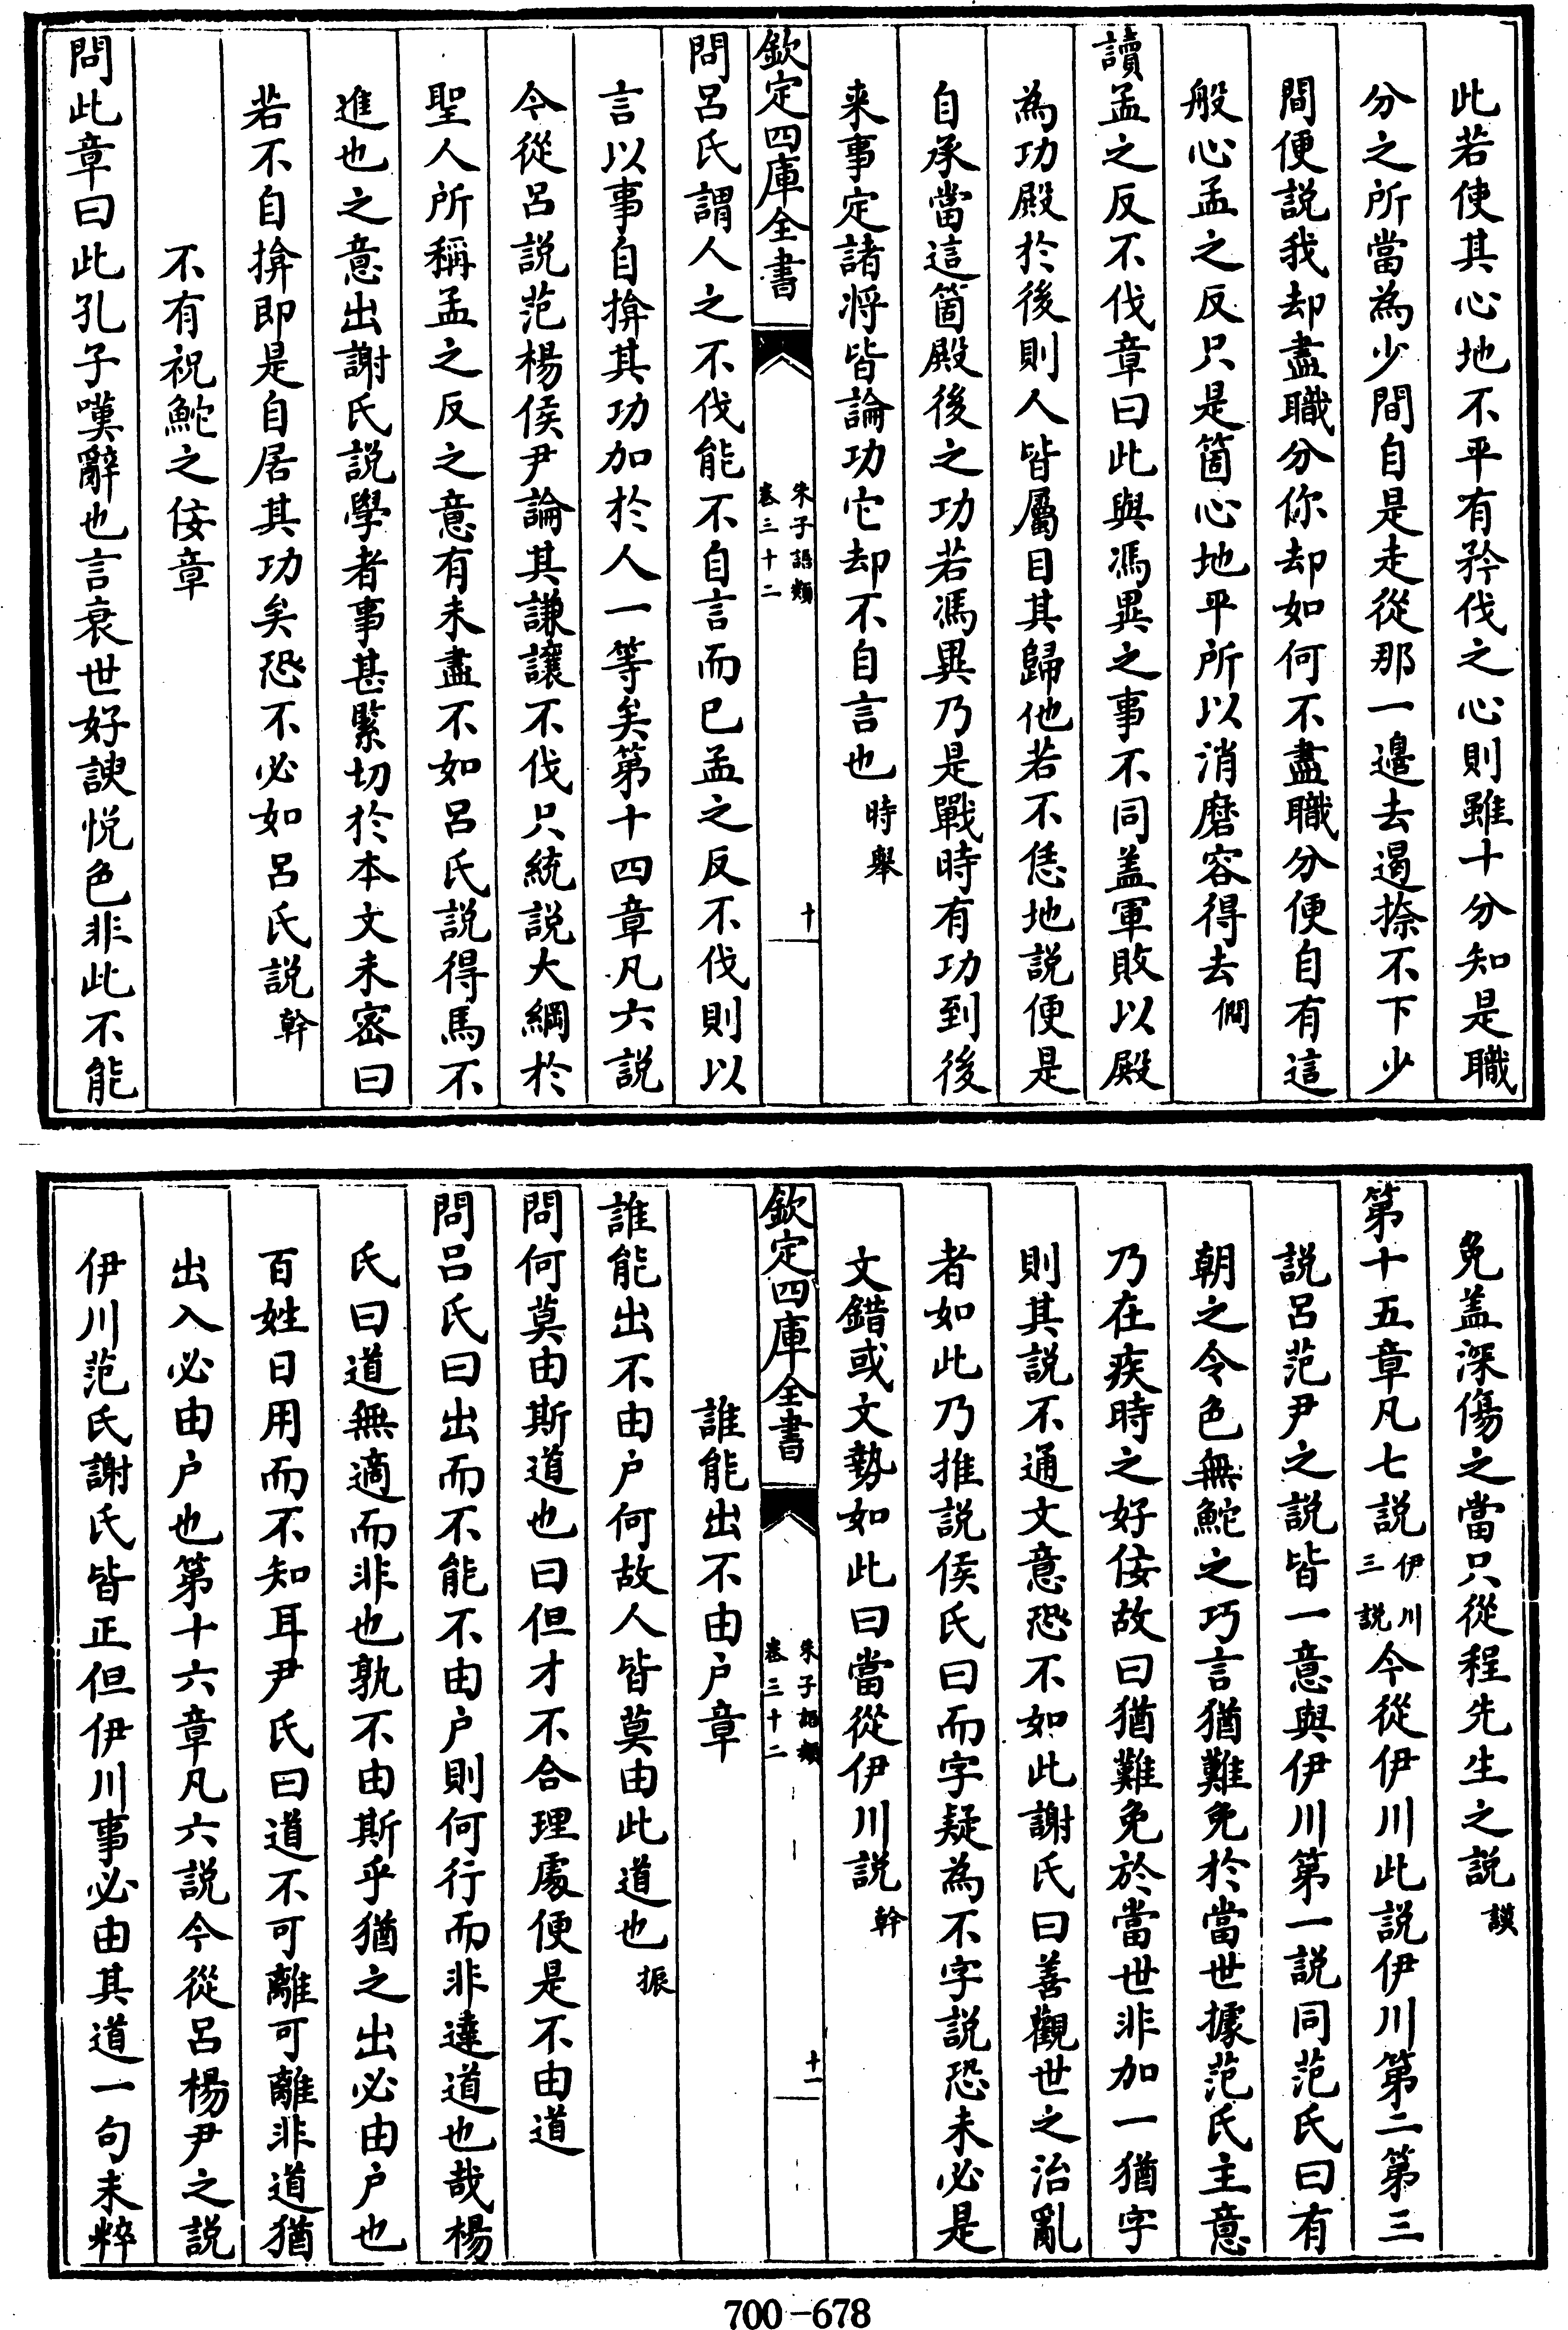 此若使其心地不平有矜伐之心則雖十分知是職
分之所當為少間自是走從那一邊去遏捺不下少
間便説我却盡職分你却如何不盡職分便自有這
般心孟之反只是箇心地平所以消磨容得去 僩
讀孟之反不伐章曰此與馮異之事不同盖軍敗以殿
為功殿於後則人皆屬目其歸他若不恁地説便是
自承當這箇殿後之功若馮異乃是戰時有功到後
来事定諸将皆論功它却不自言也 時舉
欽定四庫全書
朱子語類
卷三十二
十
問呂氏謂人之不伐能不自言而已孟之反不伐則以
言以事自揜其功加於人一等矣第十四章凡六説
今從呂説范楊侯尹論其謙讓不伐只統説大綱於
聖人所稱孟之反之意有未盡不如呂氏説得馬不
進也之意出謝氏説學者事甚緊切於本文未宻曰
若不自揜即是自居其功矣恐不必如呂氏説 榦
不有祝鮀之佞章
問此章曰此孔子嘆辭也言衰世好諛悦色非此不能
免盖深傷之當只從程先生之説 謨
第十五章凡七説 伊川三説 今從伊川此説伊川第二第三
説呂范尹之説皆一意與伊川第一説同范氏曰有
朝之令色無鮀之巧言猶難免於當世據范氏主意
乃在疾時之好佞故曰猶難免於當世非加一猶字
則其説不通文意恐不如此謝氏曰善觀世之治亂
者如此乃推説侯氏曰而字疑為不字説恐未必是
文錯或文勢如此曰當從伊川説 榦
欽定四庫全書
朱子語類
卷三十二
十一
誰能出不由户章
誰能出不由户何故人皆莫由此道也 振
問何莫由斯道也曰但才不合理處便是不由道
問呂氏曰出而不能不由户則何行而非達道也哉楊
氏曰道無適而非也孰不由斯乎猶之出必由户也
百姓日用而不知耳尹氏曰道不可離可離非道猶
出入必由户也第十六章凡六説今從呂楊尹之説
伊川范氏謝氏皆正但伊川事必由其道一句未粹
700-678